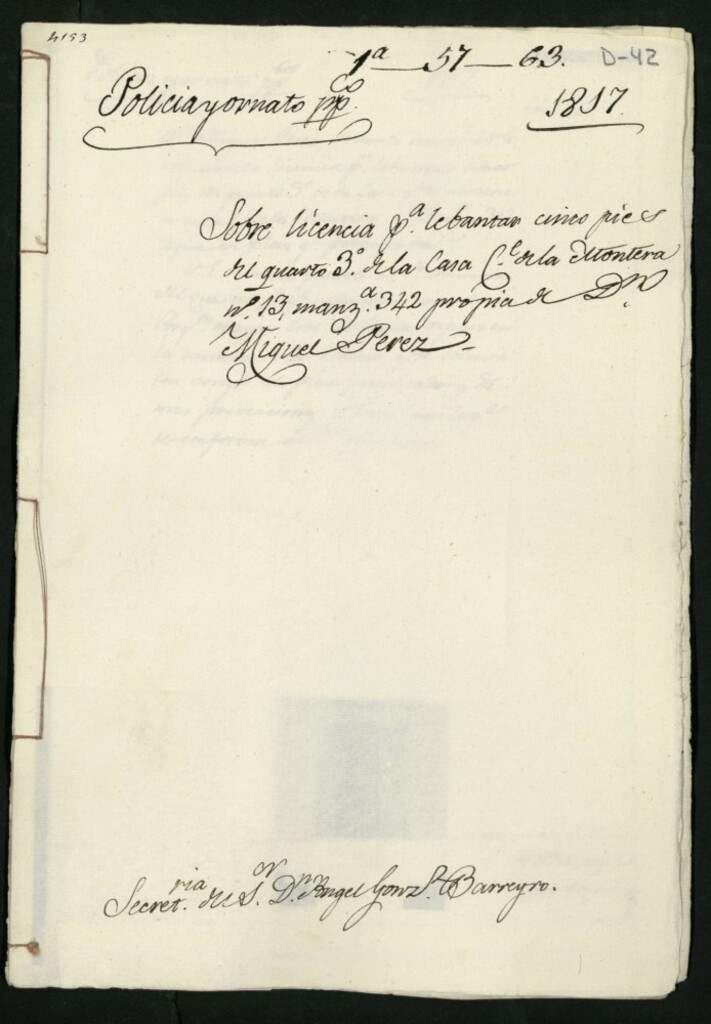 4153
1ª — 57 — 63. D-42
Policia y ornato pp.co 1817.
Sobre licencia p.ª lebantar cinco pies
del quarto 3.º de la Casa C.e de la Montera
n.º 13, manz.ª 342 propia de D.n
Miguel Perez
Secret.ria del S.or D.n Angel Gonz.z Barreyro.